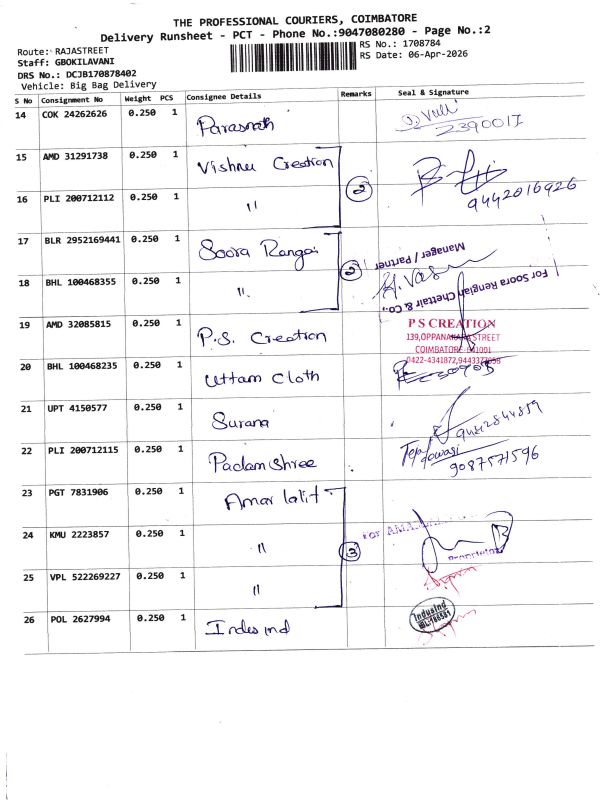 THE PROFESSIONAL COURIERS, COIMBATORE
Delivery Runsheet - PCT - Phone No.:9047080280 - Page No.:2
Route: RAJASTREET
Staff: GBOKILAVANI
DRS No.: DCJB170878402
Vehicle: Big Bag Delivery
RS No.: 1708784
RS Date: 06-Apr-2026
S No Consignment No Weight PCS Consignee Details Remarks Seal & Signature
14 COK 24262626 0.250 1 Parasnath
2390017
15 AMD 31291738 0.250 1 Vishnu Creation
16 PLI 200712112 0.250 1 "
2
9442016926
17 BLR 2952169441 0.250 1 Soora Rangai
18 BHL 100468355 0.250 1 "
2
For Soora Rengian Chettair & Co.,
H. Vasu
Manager / Partner
19 AMD 32085815 0.250 1 P.S. Creation
P S CREATION
139,OPPANAKARA STREET
COIMBATORE-641001
0422-4341872,
20 BHL 100468235 0.250 1 Uttam Cloth
21 UPT 4150577 0.250 1 Surana
22 PLI 200712115 0.250 1 Padam shree
9087571596
23 PGT 7831906 0.250 1 Amar lalit
24 KMU 2223857 0.250 1 "
25 VPL 522269227 0.250 1 "
3
For
Proprietor
26 POL 2627994 0.250 1 Indes ind
IndusInd